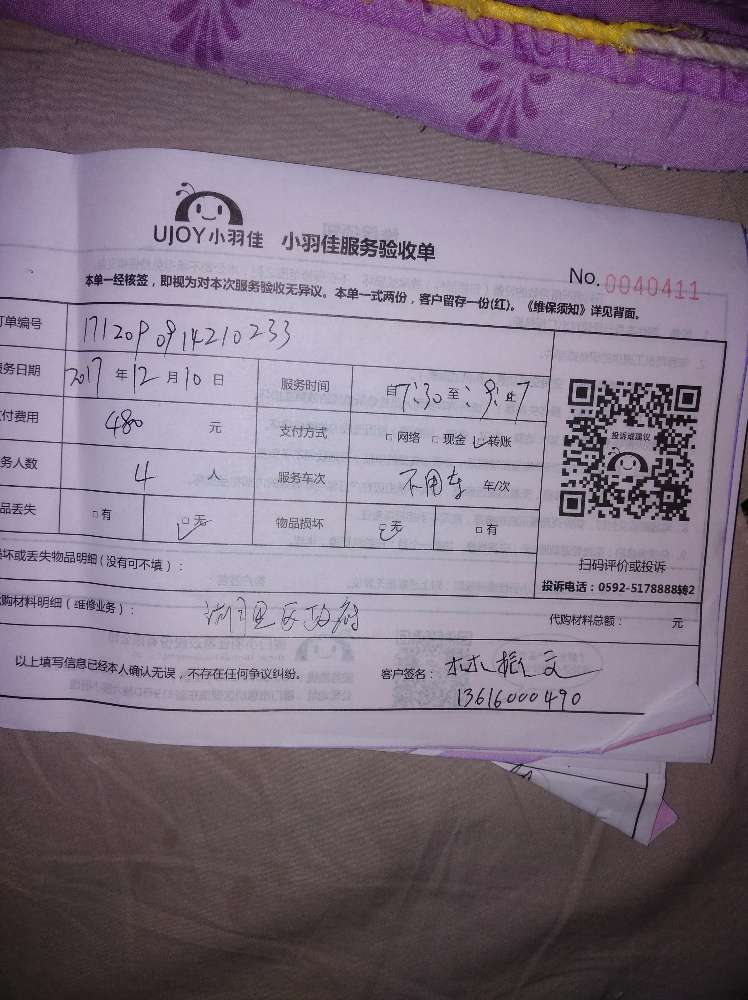 UJOY小羽佳 小羽佳服务验收单
No. 0040411
本单一经核签，即视为对本次服务验收无异议。本单一式两份，客户留存一份(红)。《维保须知》详见背面。
订单编号 171209091421 0233
务日期 2017 年 12 月 10 日 服务时间 自 7:30 至
付费用 480 元 支付方式 □ 网络 □ 现金 ☑ 转账
务人数 4 人 服务车次 不用车 车/次
品丢失 □ 有 ☑ 无 物品损坏 ☑ 无 □ 有
投诉或建议
扫码评价或投诉
投诉电话：0592-5178888转2
坏或丢失物品明细(没有可不填)：
购材料明细(维修业务)： 湖里区政府 代购材料总额： 元
以上填写信息已经本人确认无误，不存在任何争议纠纷。 客户签名： 林振文
13616000490